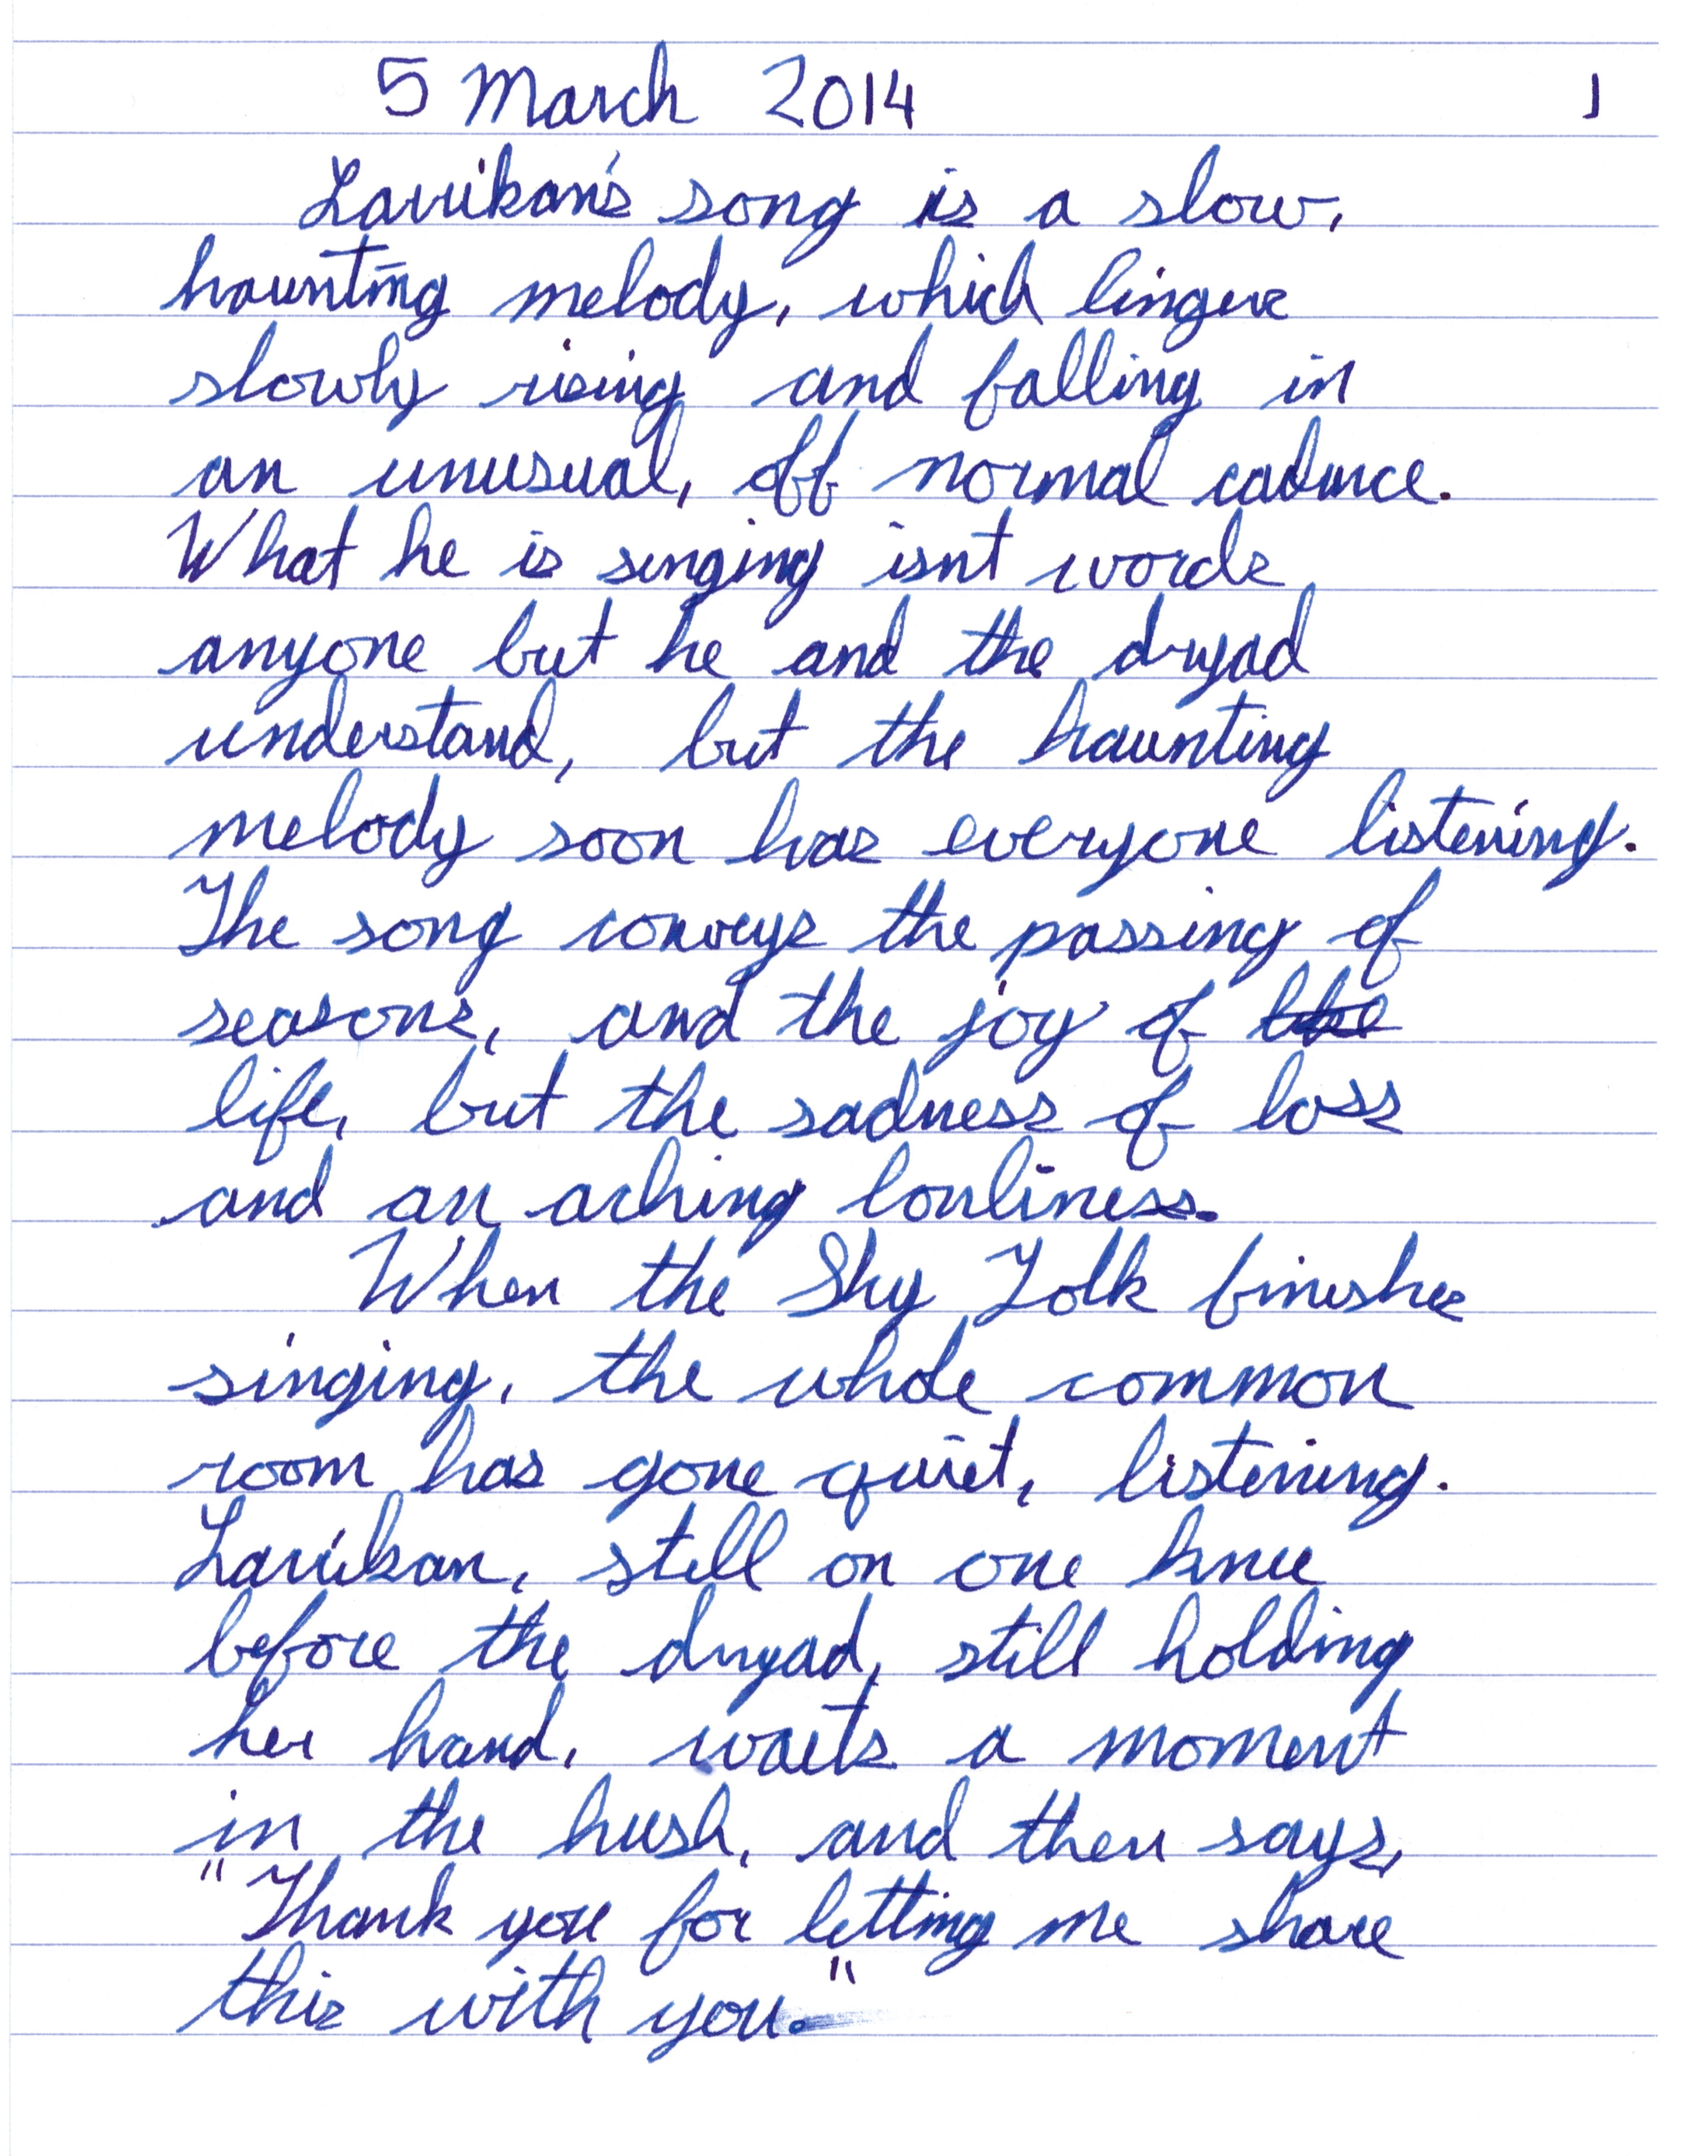 5 March 2014 1
Larrikan's song is a slow,
haunting melody, which lingers
slowly rising and falling in
an unusual, off normal cadence.
What he is singing isnt words
anyone but he and the dryad
understand, but the haunting
melody soon has everyone listening.
The song conveys the passing of
seasons, and the joy of
life, but the sadness of loss
and an aching lonliness.
When the Sky Folk finishes
singing, the whole common
room has gone quiet, listening.
Larrikan, still on one knee
before the dryad, still holding
her hand, waits a moment
in the hush, and then says,
"Thank you for letting me share
this with you."